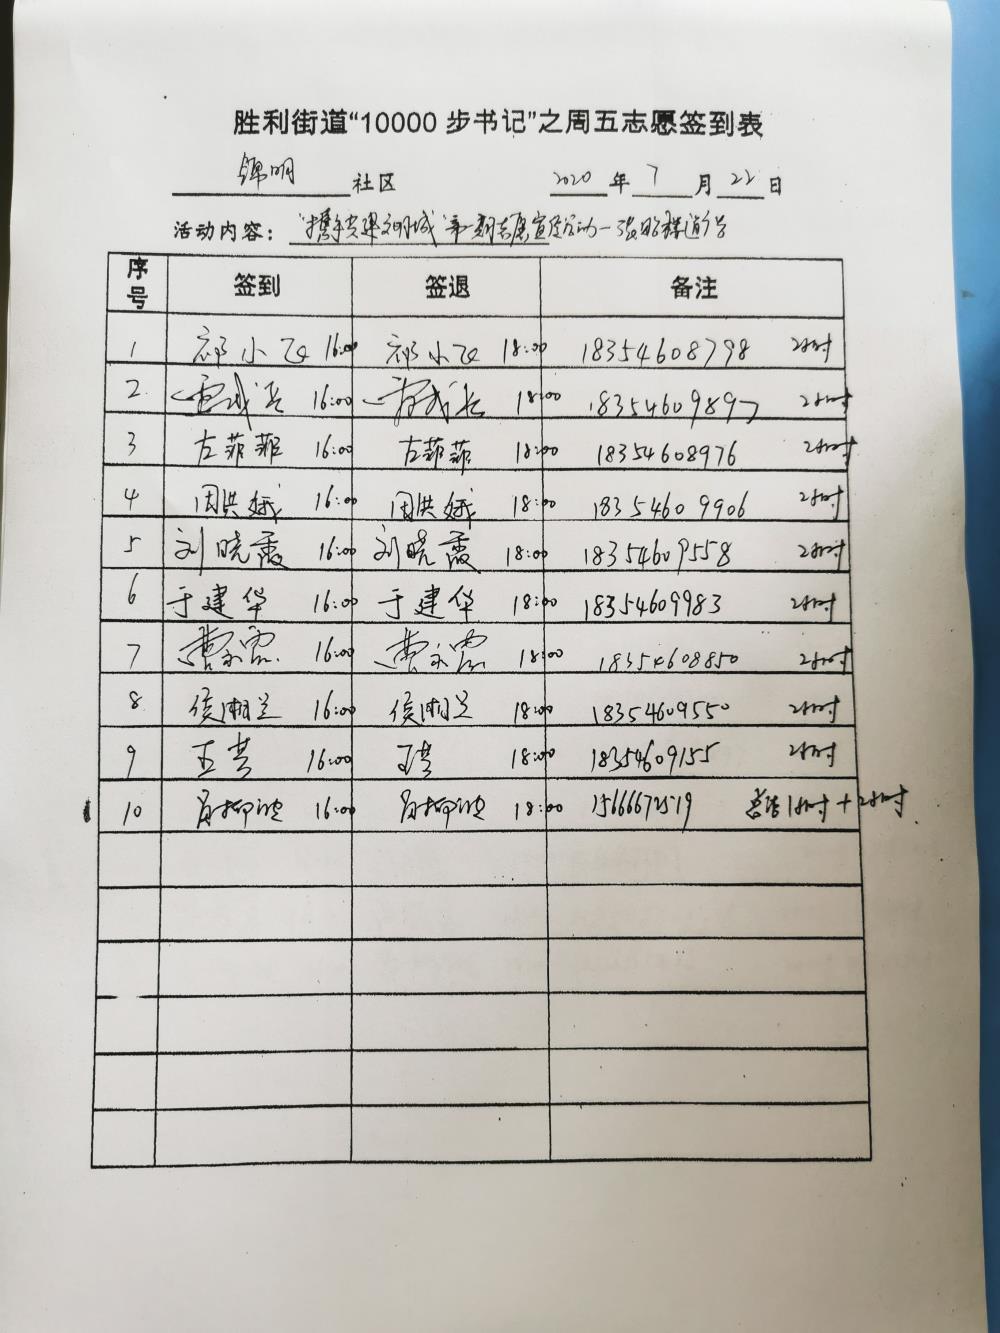 胜利街道“10000 步书记”之周五志愿签到表
锦明 社区 2020 年 7 月 22 日
活动内容： “携手共建文明城”第一期志愿宣传活动一
序号 签到 签退 备注
1 祁小飞 16:00 祁小飞 18:00 18354608798 2小时
2 16:00 18:00 18354609897 2小时
3 左菲菲 16:00 左菲菲 18:00 18354608976 2小时
4 周洪娥 16:00 周洪娥 18:00 18354609906 2小时
5 刘晓霞 16:00 刘晓霞 18:00 18354609558 2小时
6 于建华 16:00 于建华 18:00 18354609983 2小时
7 16:00 18:00 18354608850 2小时
8 侯湘兰 16:00 侯湘兰 18:00 18354609550 2小时
9 王芸 16:00 18:00 18354609155 2小时
10 16:00 18:00 15666672519 1小时+2小时